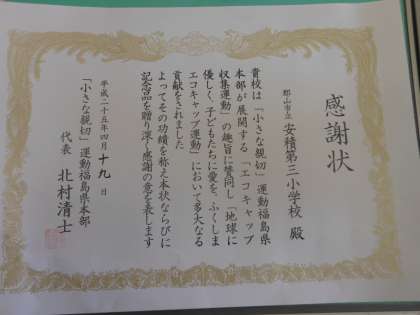 感謝状
郡山市立 安積第三小学校 殿
貴校は「小さな親切」運動福島県
本部が展開する「エコキャップ
収集運動」の趣旨に賛同し「地球に
優しく、子どもたちに愛を、ふくしま
エコキャップ運動」において多大なる
貢献をされました
よってその功績を称え本状ならびに
記念品を贈り深く感謝の意を表します
平成二十五年四月十九日
「小さな親切」運動福島県本部
代表 北村清士